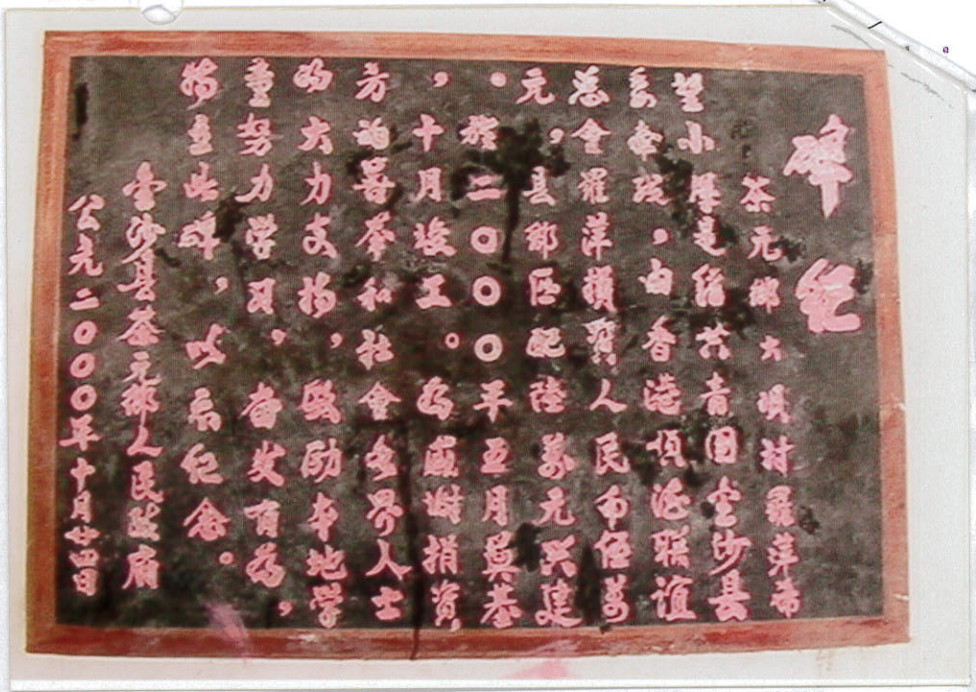 碑纪
茶元鄉大坝村羅萍希
望小學是经共青团金沙县
委牵线，由香港恒河联谊
总會羅萍捐人民币伍萬
元，县鄉区配陸萬元兴建
。於二〇〇〇年五月奠基
，十月竣工。為感谢捐資
方的善举和社会各界人士
的大力支持，鼓励本地学
童努力学习，奋发有為，
特立此碑，以示纪念。
金沙县茶元鄉人民政府
公元二000年十月廿四日